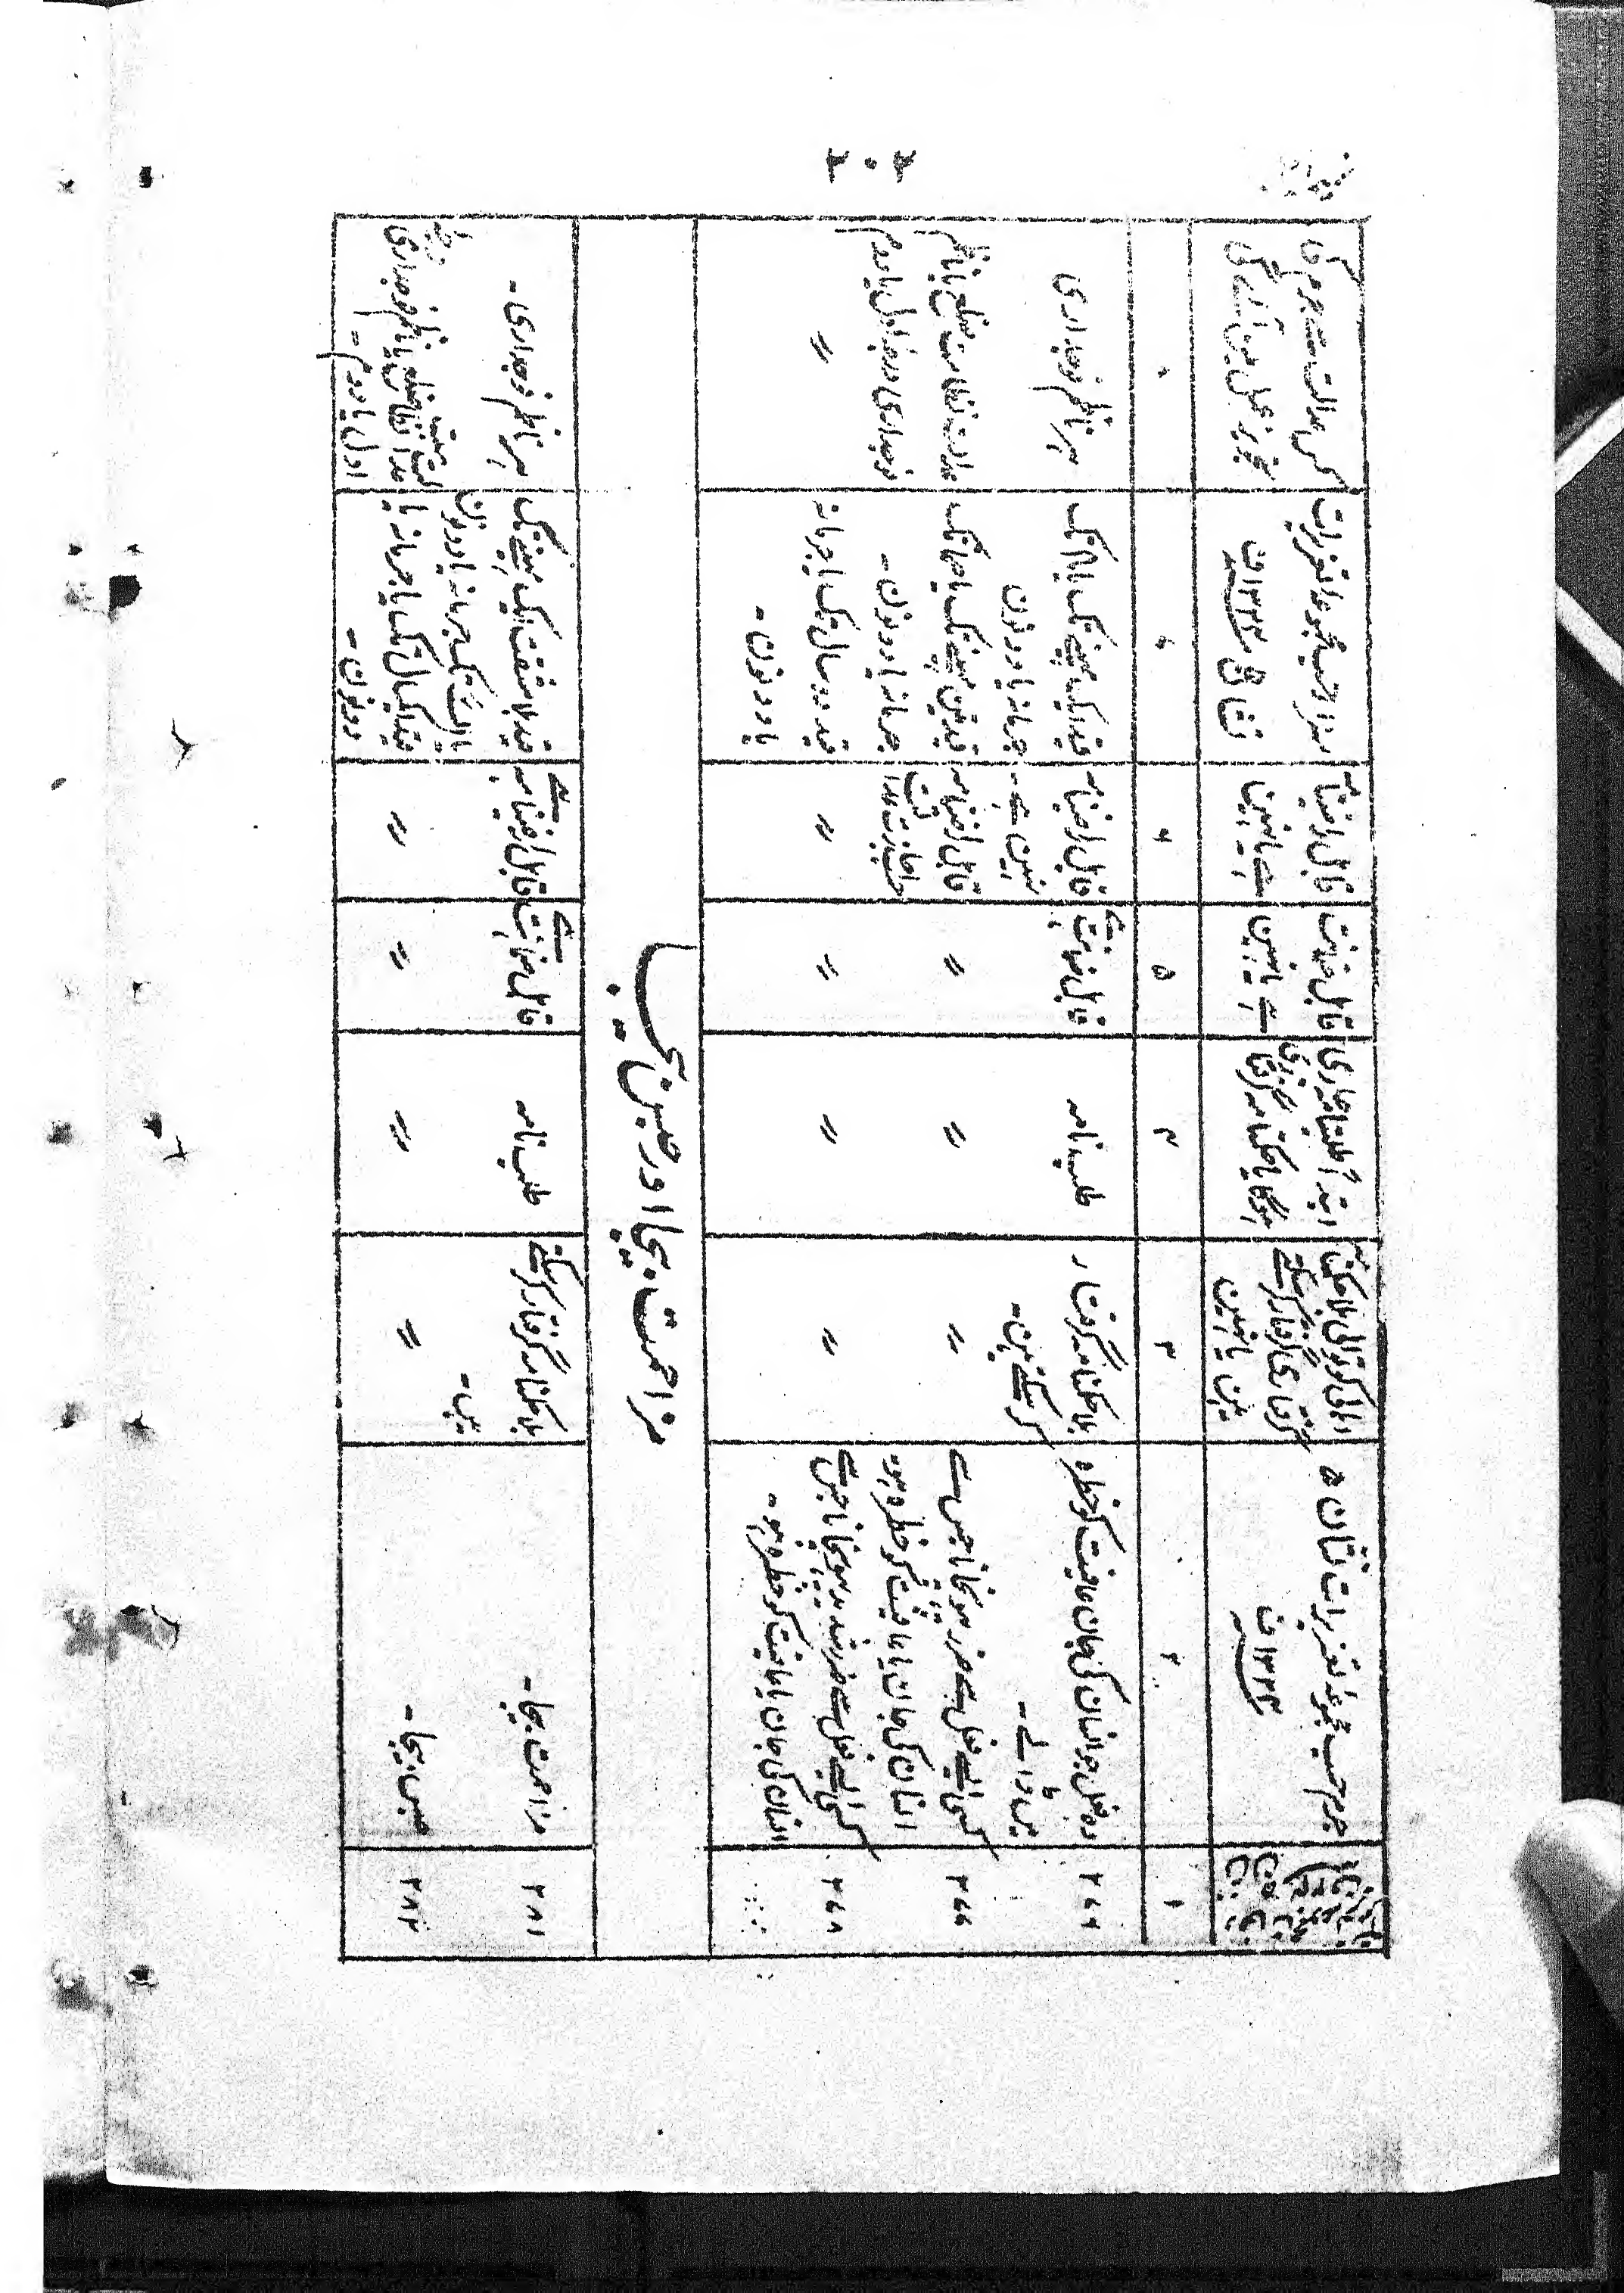 جرم حسب مجموعہ تعزیرات نشان ۵
۱۳۲۴ ف
اہالی کوتوالی بلا حکمنامہ
گرفتاری گرفتار کرسکتے
ہین یا نہین
ابتداً طلبنامہ جاری
ہوگا یا حکمنامہ گرفتاری
قابل ضمانت
ہے یا نہین
قابل راضینامہ
ہے یا نہین
سزا حسب مجموعہ تعزیرات
نشان ۱۳۲۴ ف
کس عدالت سے جرم کی
تجویز عمل مین آئے گی
۱
۲
۳
۴
۵
۶
۷
۸
وہ فعل جو انسان کی جان عافیت کو خطرہ
مین ڈالے -
بلا حکمنامہ گرفتار
کرسکتے ہین -
طلب نامہ
قابل ضمانت ہے
قابل راضینامہ
نہین ہے -
قید ایک مہینے تک یا تک
جرمانہ یا دونون
ہر ناظم فوجداری
کسی ایسے فعل سے ضرر پہونچانا جس سے
انسان کی جان یا عافیت کو خطرہ ہو
〃
〃
〃
قابل راضینامہ
باجازت عدالت
قید تین مہینے تک یا تک
جرمانہ یا دونون -
عدالت نظامت ضلع یا ناظم
فوجداری درجہ اول یا دوم
۳۶۸
کسی ایسے فعل سے ضرر شدید پہونچانا جس سے
انسان کی جان یا عافیت کو خطرہ ہو -
〃
〃
〃
〃
قید دو سال تک یا جرمانہ
یا دونون -
〃
مزاحمت بیجا اور حبس بیجا
۳۸۱
مزاحمت بیجا -
بلا حکمنامہ گرفتار کرسکتے
ہین -
طلب نامہ
قابل ضمانت ہے
قابل راضینامہ ہے
قید بلا مشقت ایک مہینے تک
یا تک جرمانہ یا دونون
ہر ناظم فوجداری -
۳۸۲
حبس بیجا -
〃
〃
〃
〃
قید ایک سال تک یا جرمانہ یا
دونون -
عدالت نظامت ضلع یا ناظم فوجداری درجہ
اول یا دوم -